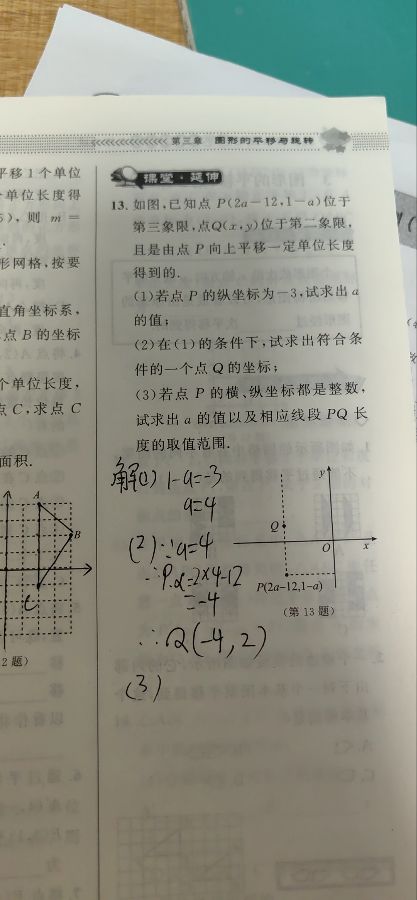 第三章 图形的平移与旋转
平移1个单位
个单位长度得
5),则 m=
形网格,按要
直角坐标系,
点B的坐标
个单位长度,
点C,求点C
面积.
A
B
C
2题)
课堂·延伸
13. 如图,已知点 P(2a-12,1-a)位于
第三象限,点Q(x,y)位于第二象限,
且是由点 P 向上平移一定单位长度
得到的.
(1)若点 P 的纵坐标为-3,试求出 a
的值;
(2)在(1)的条件下,试求出符合条
件的一个点 Q 的坐标;
(3)若点 P 的横、纵坐标都是整数,
试求出 a 的值以及相应线段 PQ 长
度的取值范围.
解(1) 1-a=-3
a=4
(2) ∵a=4
∴P.x=2×4-12
=-4
∴Q(-4,2)
(3)
y
Q
O
x
P(2a-12,1-a)
(第13题)